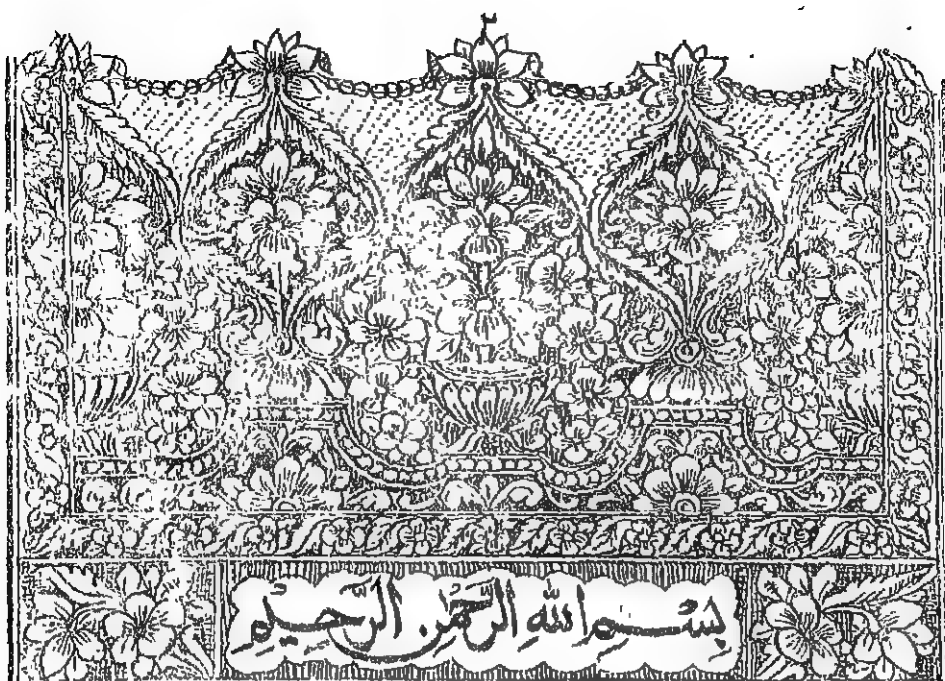 ٢
بِسْمِ اللهِ الرَّحْمٰنِ الرَّحِيْمِ